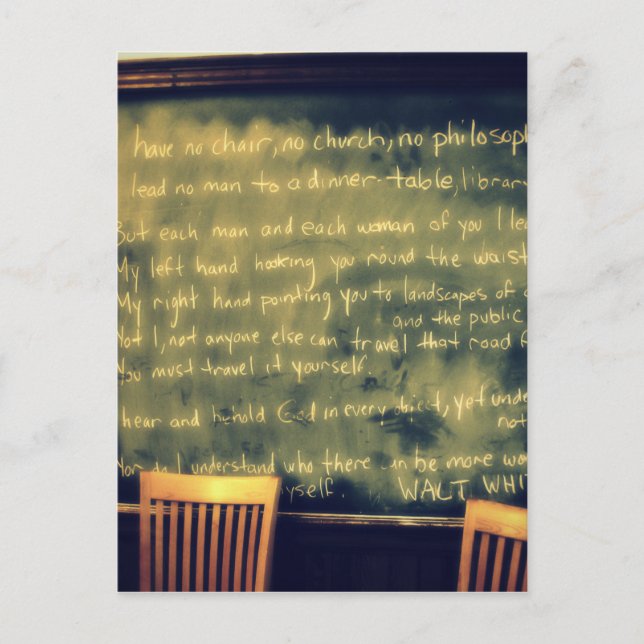 have no chair, no church, no philosop
lead no man to a dinner-table, library
But each man and each woman of you I lea
My left hand hooking you round the waist
My right hand pointing you to landscapes of
and the public
Not I, not anyone else can travel that road f
You must travel it yourself.
hear and behold God in every object, yet unde
not
Nor do I understand who there can be more wo
myself. WALT WHIT